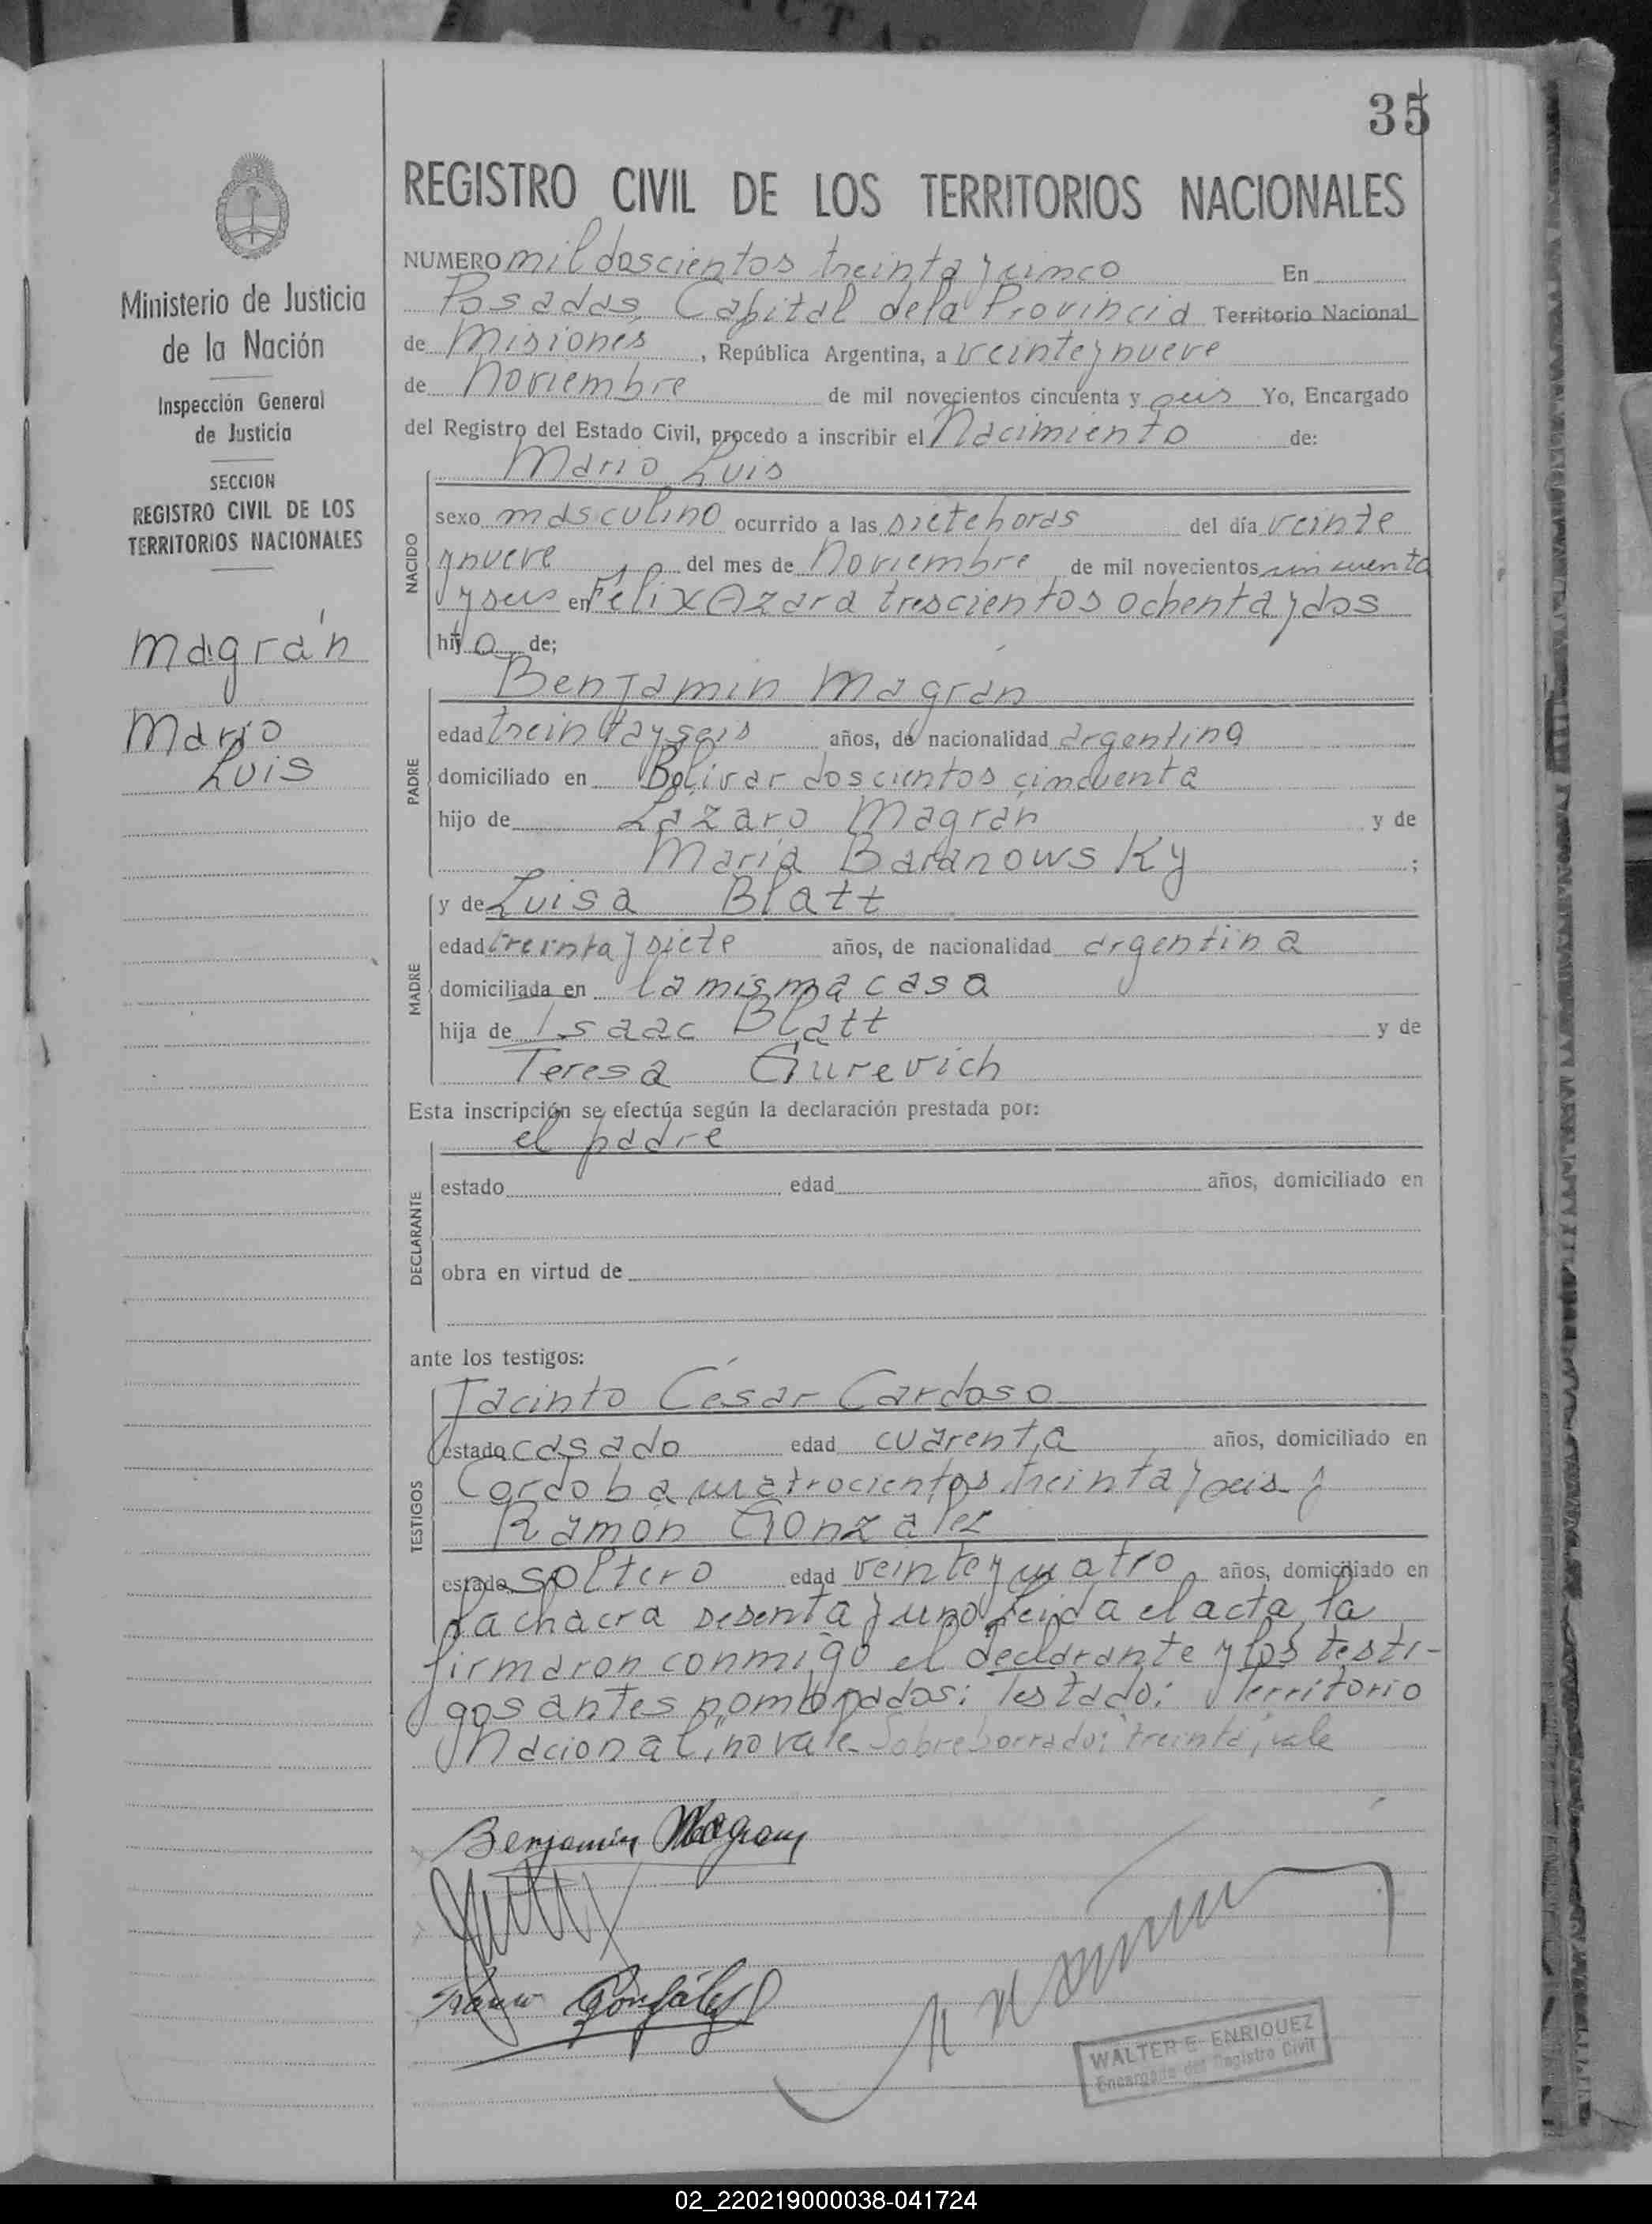 35
REGISTRO CIVIL DE LOS TERRITORIOS NACIONALES
Ministerio de Justicia
de la Nación
Inspección General
de Justicia
SECCION
REGISTRO CIVIL DE LOS
TERRITORIOS NACIONALES
Magrán
Mario
Luis
NUMERO mil doscientos treinta y cinco En
Posadas, Capital de la Provincia Territorio Nacional
de Misiones, República Argentina, a veinte y nueve
de Noviembre de mil novecientos cincuenta y seis Yo, Encargado
del Registro del Estado Civil, procedo a inscribir el Nacimiento de:
NACIDO
Mario Luis
sexo masculino ocurrido a las siete horas del día veinte
y nueve del mes de Noviembre de mil novecientos cincuenta
y seis en Félix Azara trescientos ochenta y dos
hijo de;
PADRE
Benjamin Magrán
edad treinta y seis años, de nacionalidad argentina
domiciliado en Bolívar doscientos cincuenta
hijo de Lázaro Magrán y de
María Baranowsky ;
MADRE
y de Luisa Blatt
edad treinta y siete años, de nacionalidad argentina
domiciliada en la misma casa
hija de Isaac Blatt y de
Teresa Gurevich
Esta inscripción se efectúa según la declaración prestada por:
DECLARANTE
el padre
estado edad años, domiciliado en
obra en virtud de
ante los testigos:
TESTIGOS
Jacinto César Cardoso
estado casado edad cuarenta años, domiciliado en
Cordoba cuatrocientos treinta y seis y
Ramón González
estado soltero edad veinte y cuatro años, domiciliado en
la chacra sesenta y uno leida el acta, la
firmaron conmigo el declarante y los testi-
gos antes nombrados: Testado: Territorio
Nacional, no vale Sobreborrado: "treinta", vale
Benjamin Magran
González
WALTER E. ENRIQUEZ
Encargado del Registro Civil
02_220219000038-041724